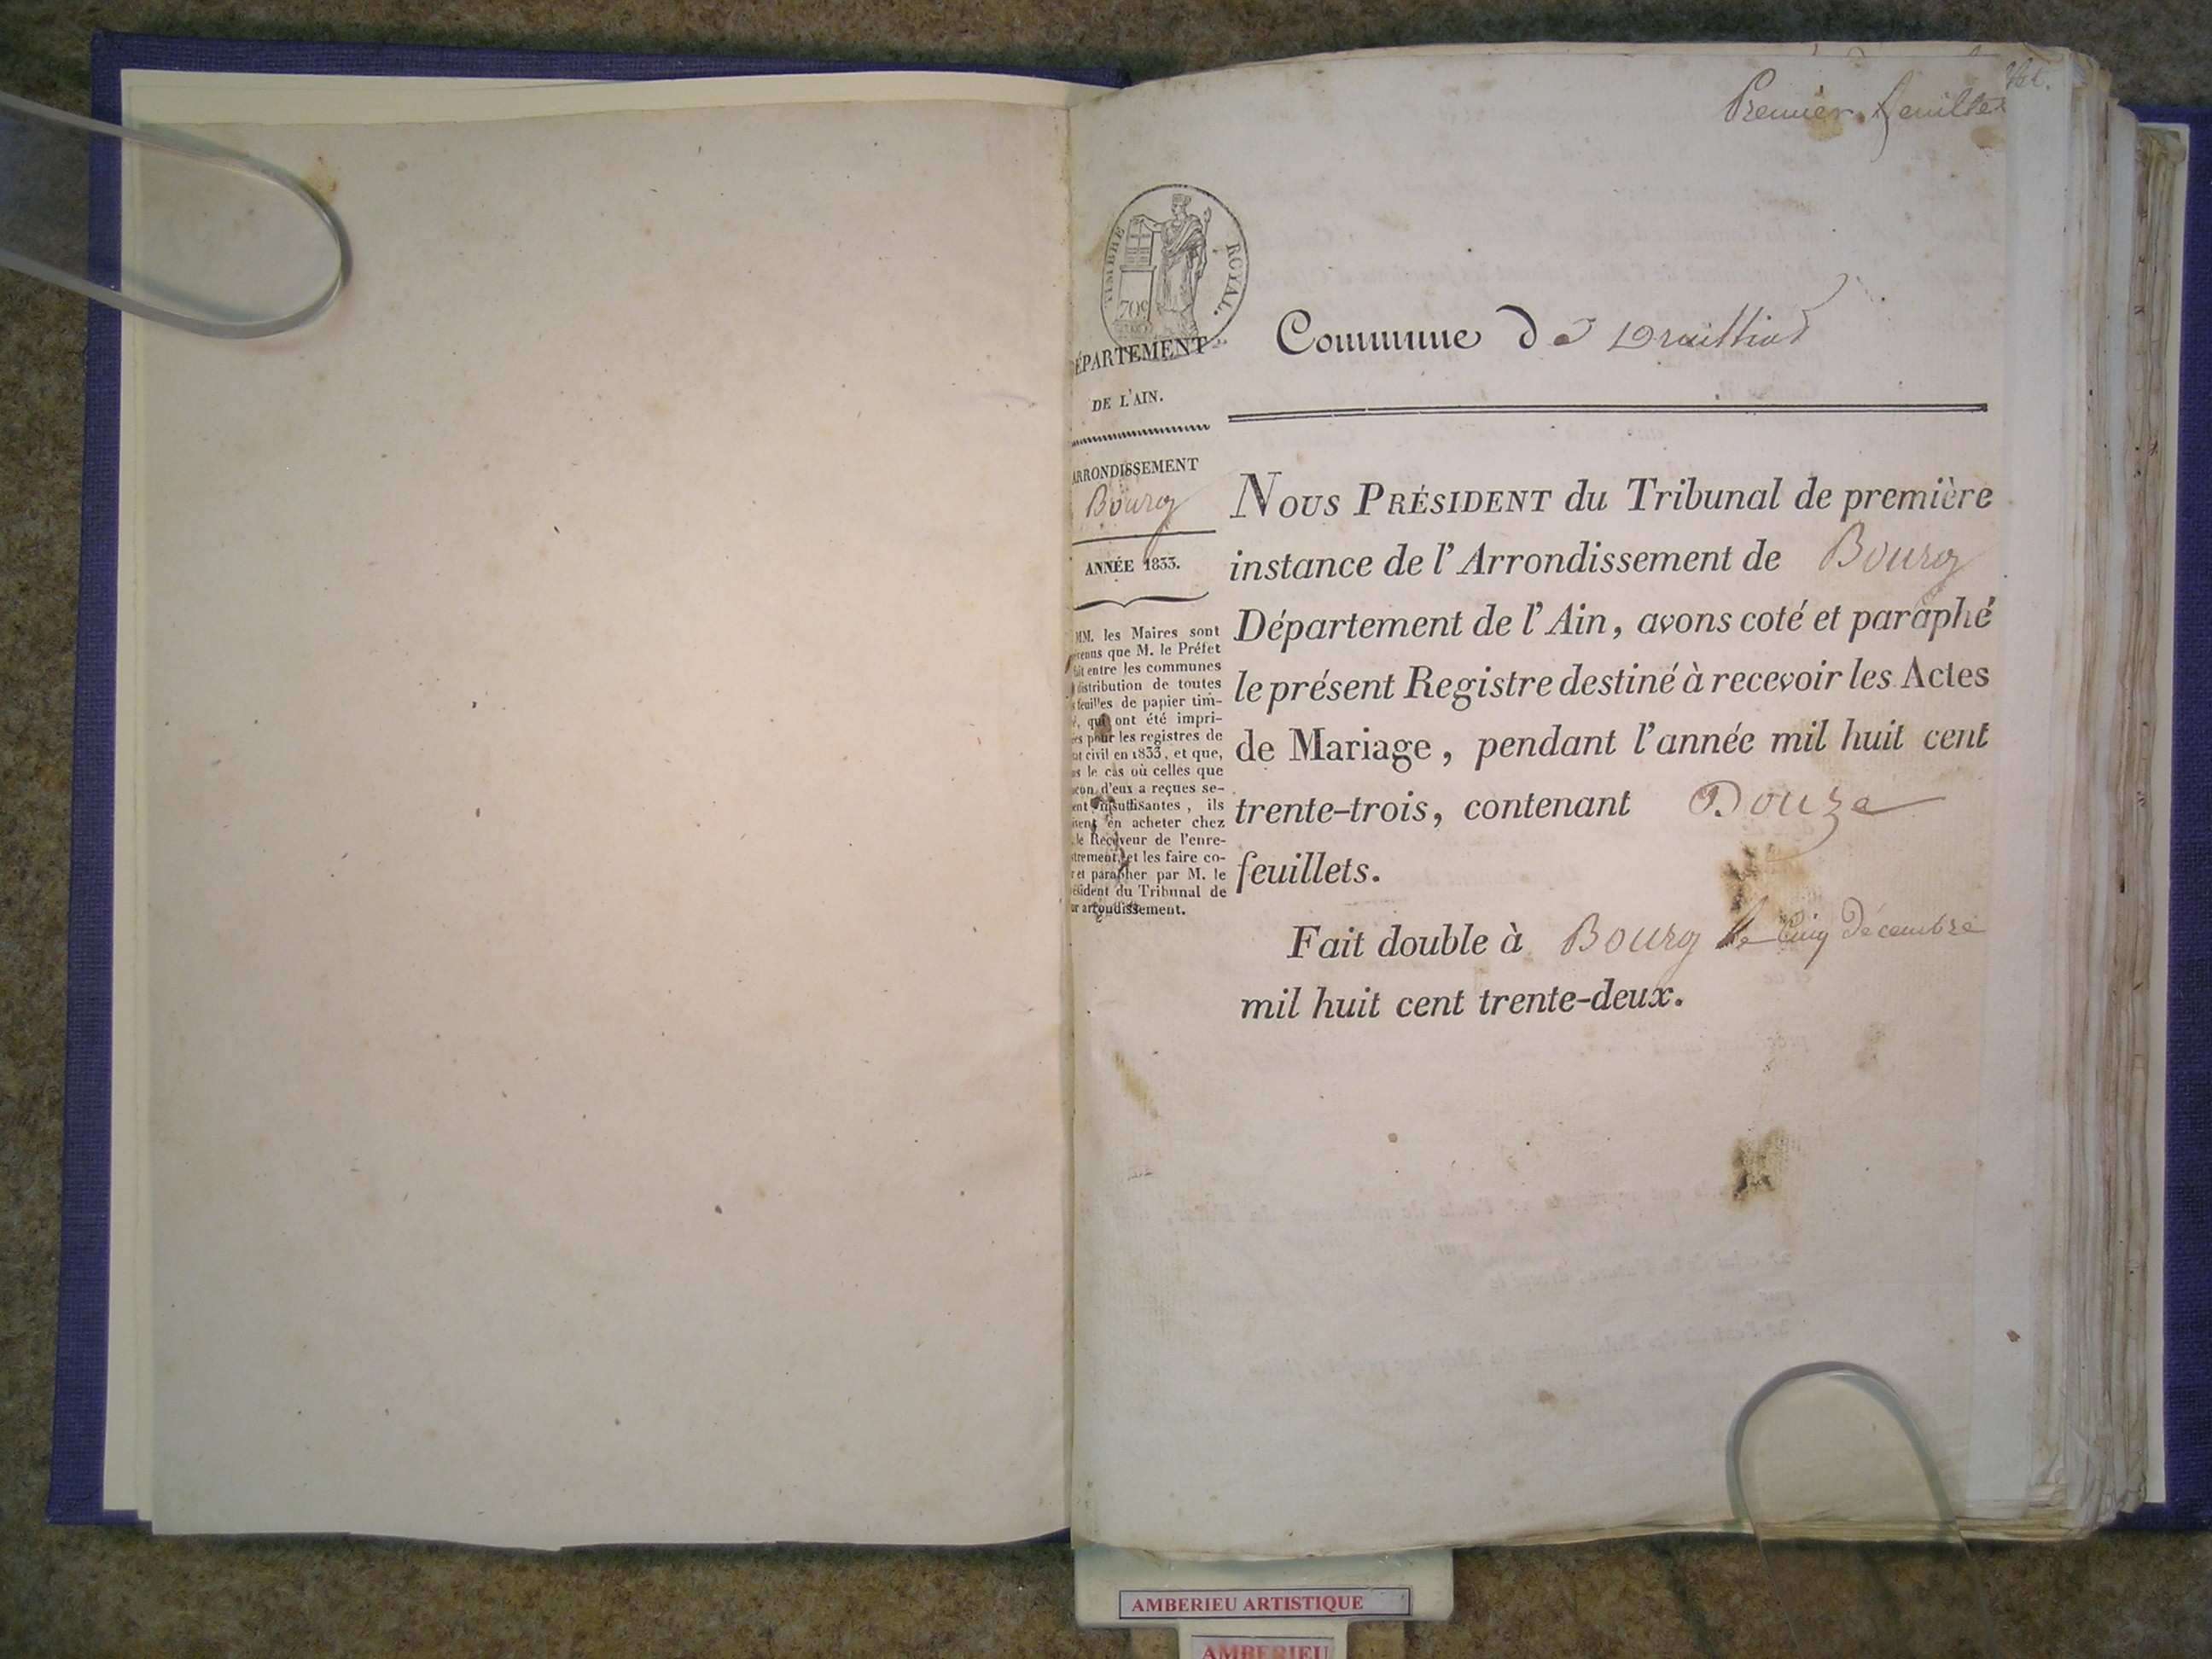 Premier feuillet
TIMBRE ROYAL.
70c
Commune de Druillat
ÉPARTEMENT
DE L'AIN.
ARRONDISSEMENT
Bourg
ANNÉE 1833.
MM. les Maires sont
que M. le Préfet
fait entre les communes
distribution de toutes
feuilles de papier tim-
qui ont été impri-
pour les registres de
civil en 1833, et que,
le cas où celles que
d'eux a reçues se-
insuffisantes, ils
en acheter chez
le Receveur de l'enre-
et les faire co-
et parapher par M. le
Président du Tribunal de
arrondissement.
NOUS PRÉSIDENT du Tribunal de première
instance de l'Arrondissement de Bourg
Département de l'Ain, avons coté et paraphé
le présent Registre destiné à recevoir les Actes
de Mariage, pendant l'année mil huit cent
trente-trois, contenant Douze
feuillets.
Fait double à Bourg le Cinq Décembre
mil huit cent trente-deux.
AMBERIEU ARTISTIQUE
AMBERIEU